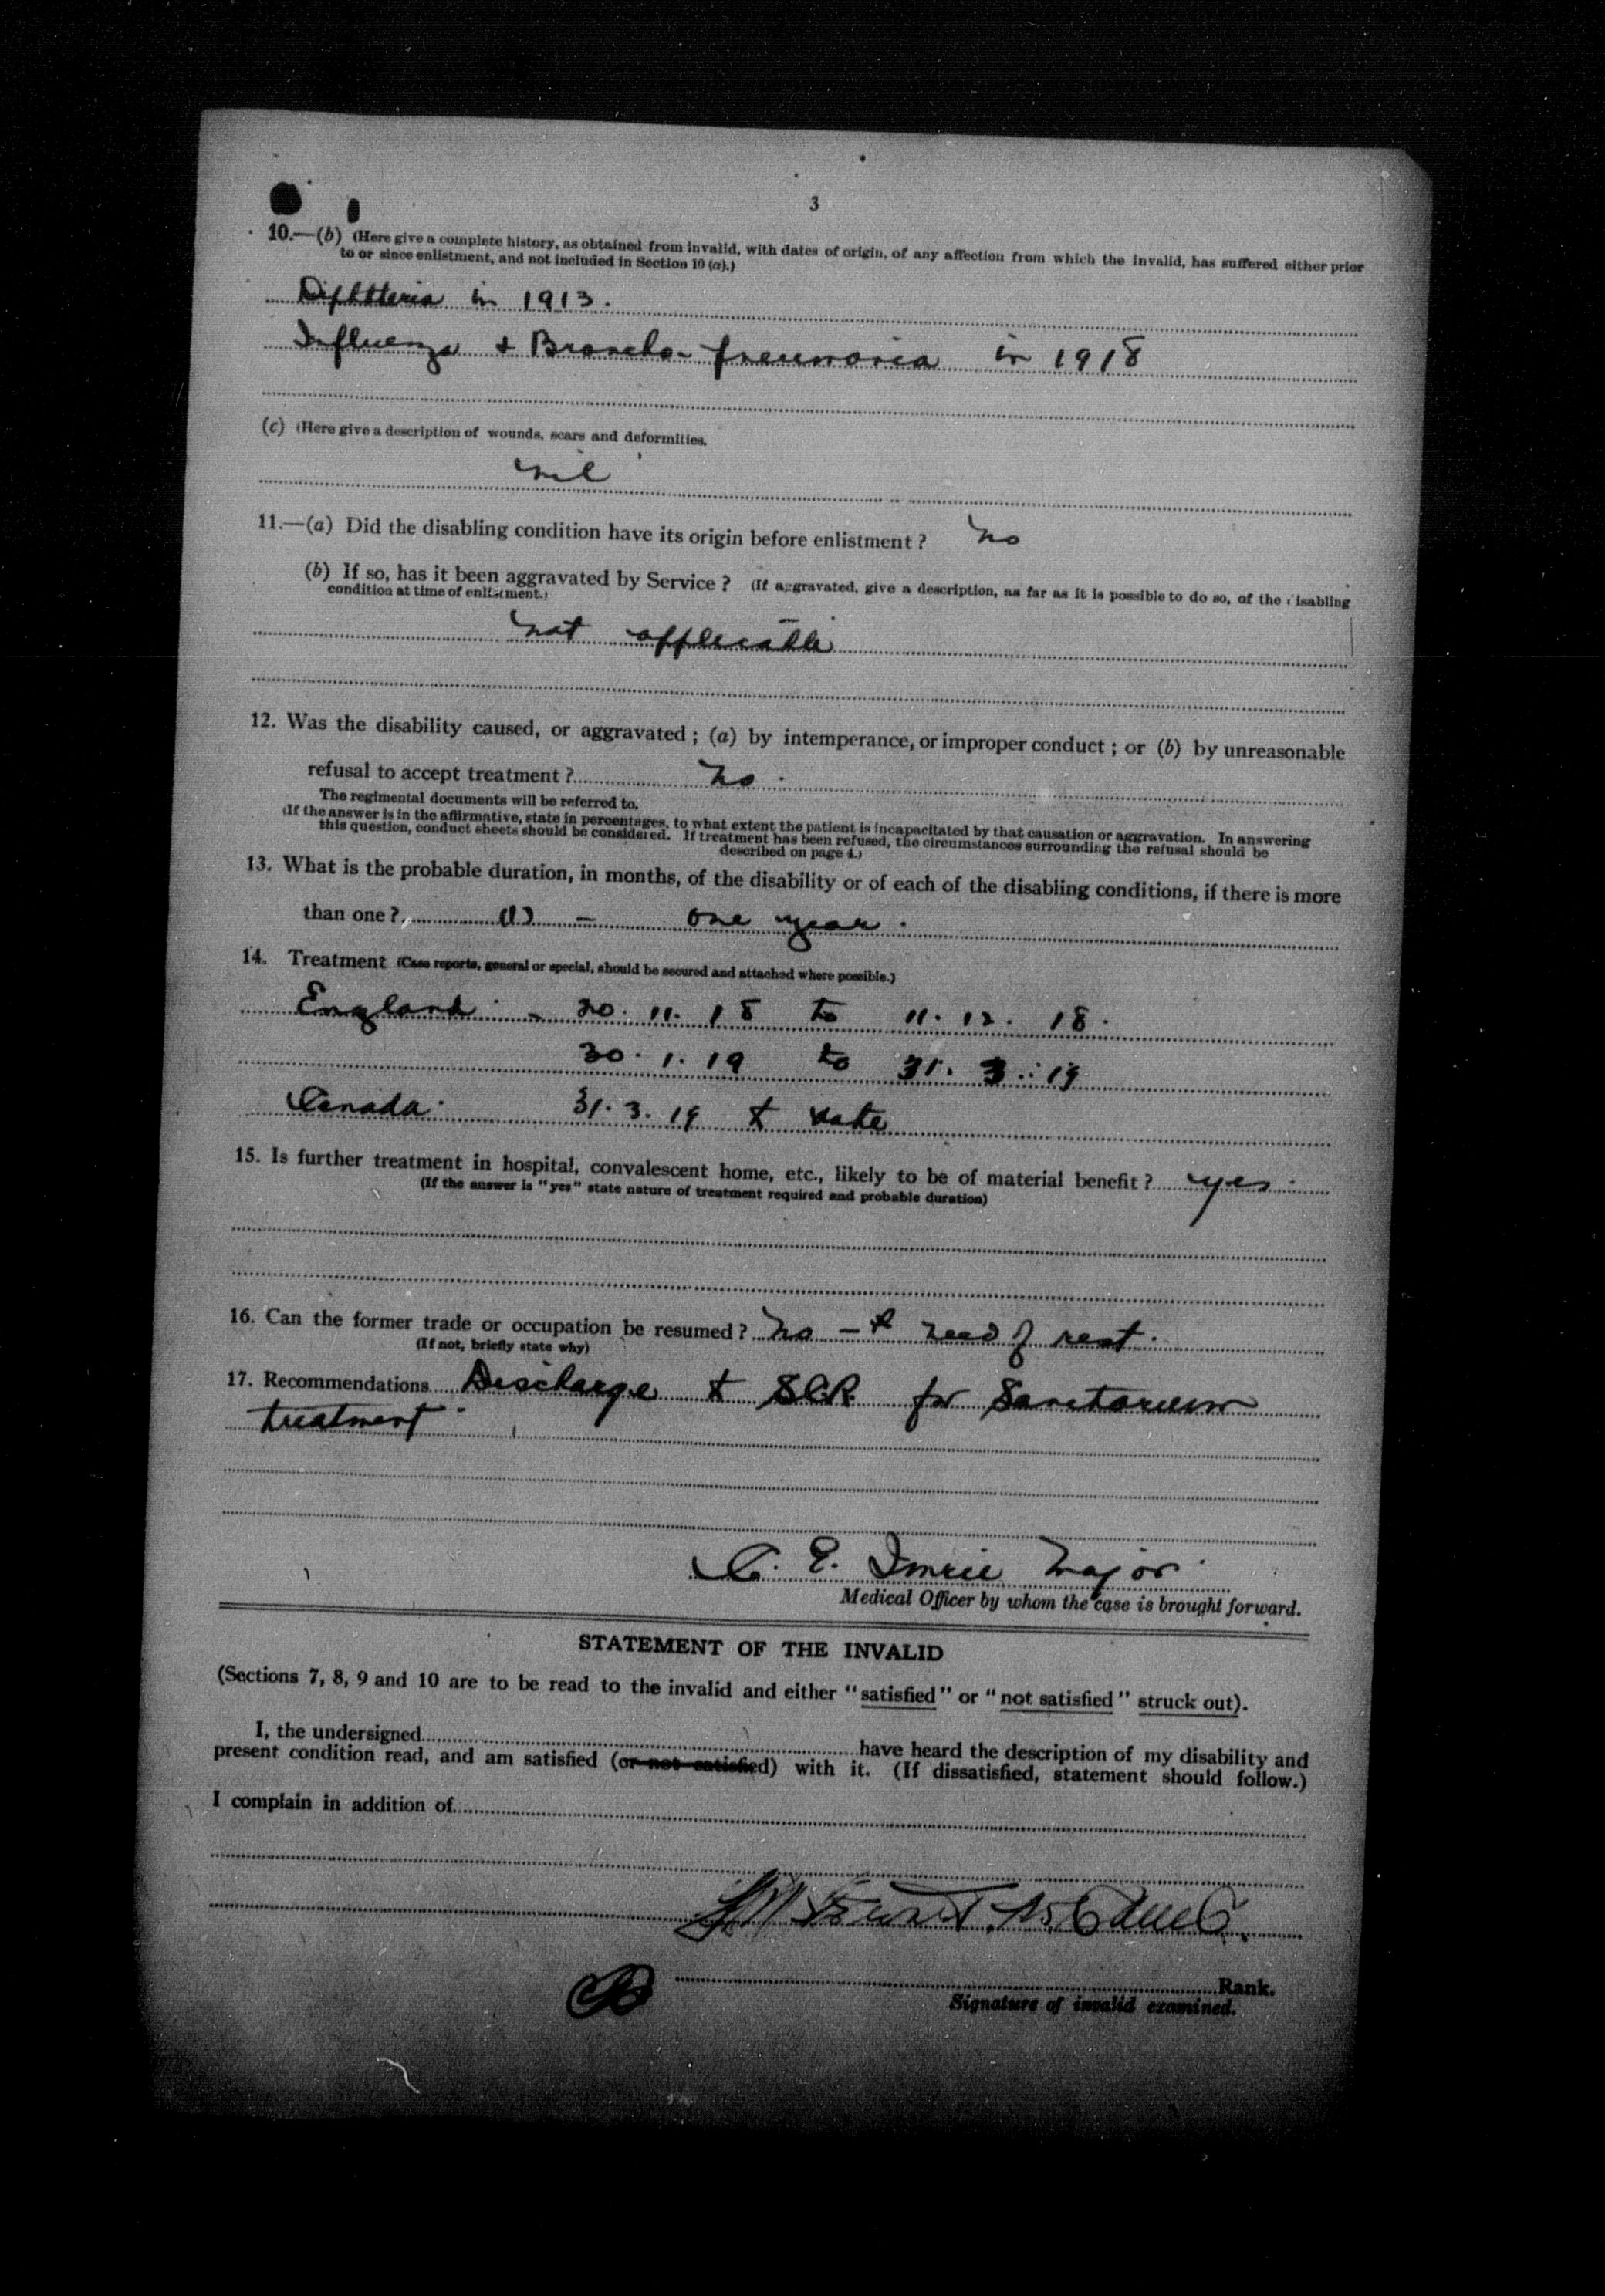 3
10.—(b) (Here give a complete history, as obtained from invalid, with dates of origin, of any affection from which the invalid, has suffered either prior
to or since enlistment, and not included in Section 10 (a).)
Diphtheria in 1913.
Influenza + Broncho-pneumonia in 1918
(c) (Here give a description of wounds, scars and deformities.
nil
11.—(a) Did the disabling condition have its origin before enlistment? no
(b) If so, has it been aggravated by Service? (If aggravated, give a description, as far as it is possible to do so, of the disabling
condition at time of enlistment.)
not applicable
12. Was the disability caused, or aggravated; (a) by intemperance, or improper conduct; or (b) by unreasonable
refusal to accept treatment? no.
The regimental documents will be referred to.
(If the answer is in the affirmative, state in percentages, to what extent the patient is incapacitated by that causation or aggravation. In answering
this question, conduct sheets should be considered. If treatment has been refused, the circumstances surrounding the refusal should be
described on page 4.)
13. What is the probable duration, in months, of the disability or of each of the disabling conditions, if there is more
than one? (1) — one year.
14. Treatment (Case reports, general or special, should be secured and attached where possible.)
England - 20. 11. 18 to 11. 12. 18.
30. 1. 19 to 31. 3. 19
Canada. 31. 3. 19 to date
15. Is further treatment in hospital, convalescent home, etc., likely to be of material benefit? yes
(If the answer is "yes" state nature of treatment required and probable duration)
16. Can the former trade or occupation be resumed? no — need of rest.
(If not, briefly state why)
17. Recommendations Discharge to SCR for Sanitarium
treatment
C. E. Imrie Major
Medical Officer by whom the case is brought forward.
STATEMENT OF THE INVALID
(Sections 7, 8, 9 and 10 are to be read to the invalid and either "satisfied" or "not satisfied" struck out).
I, the undersigned have heard the description of my disability and
present condition read, and am satisfied (or not satisfied) with it. (If dissatisfied, statement should follow.)
I complain in addition of
Rank.
Signature of invalid examined.